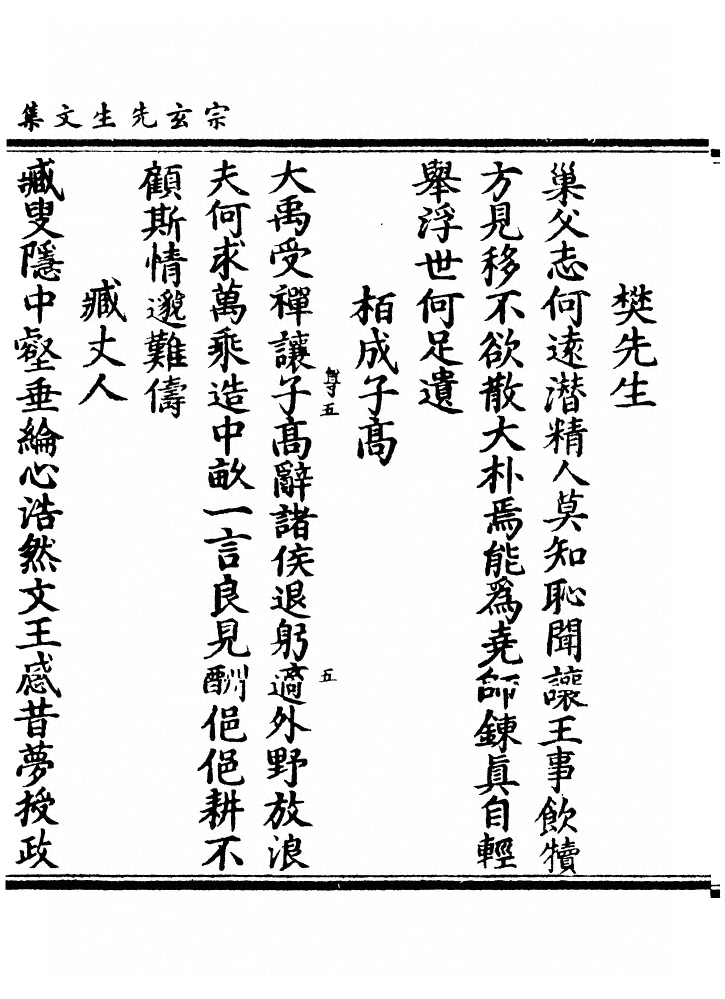 宗玄先生文集
樊先生
巢父志何遠潛精人莫知恥聞讓王事飲犢
方見移不欲散大朴焉能爲堯師鍊眞自輕
舉浮世何足遺
栢成子高
尊五
大禹受禪讓子高辭諸侯退躬適外野放浪
五
夫何求萬乘造中畝一言良見酬俋俋耕不
顧斯情邈難儔
臧丈人
臧叟隱中壑垂綸心浩然文王感昔夢授政